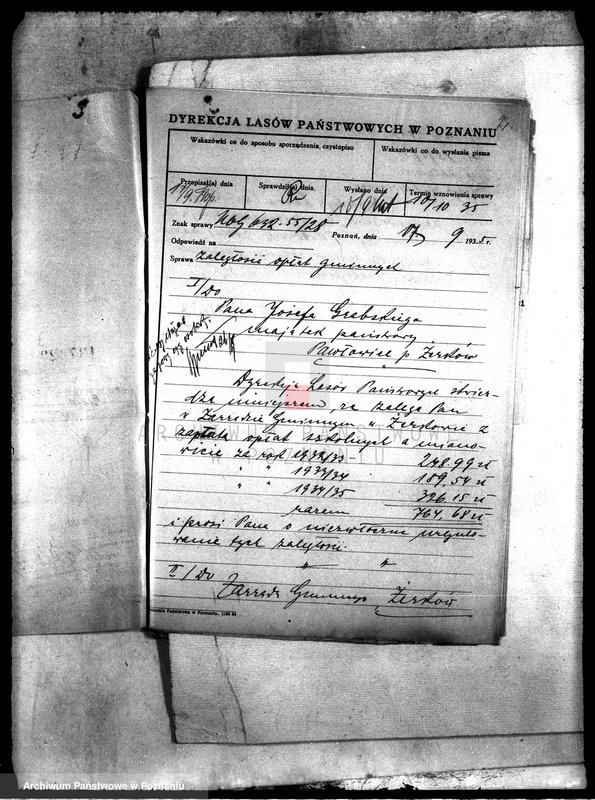 DYREKCJA LASÓW PAŃSTWOWYCH W POZNANIU
Wskazówki co do sposobu sporządzenia czystopisu
Wskazówki co do wysłania pisma
Przepisał(a) dnia
Sprawdził(a) dnia
Wysłano dnia
Termin wznowienia sprawy
17/9
10/10 35
Znak sprawy 55/28
Poznań, dnia 17 9 1935 r.
Odpowiedź na
Sprawa zaległości opłat gminnych
I/ Do
Pana Józefa Grabskiego
majątek państwowy
Pawłowice p Żerków
Dyrekcja Lasów Państwowych stwier-
dza niniejszem, że zalega Pan
w Zarządzie Gminnym w Żerkowie z
zapłatą opłat szkolnych a miano-
wicie za rok 1932/33 - 248.99 zł
" " 1933/34 189,54 zł
" " 1934/35 326.15 zł
razem 764,68 zł
i prosi Pana o niezwłoczne uregulo-
wanie tych zaległości.
II/ Do
Zarządu Gminnego Żerków
Państwowa w Poznaniu.
ARCHIWUM PAŃSTWOWE
W POZNANIU
Archiwum Państwowe w Poznaniu